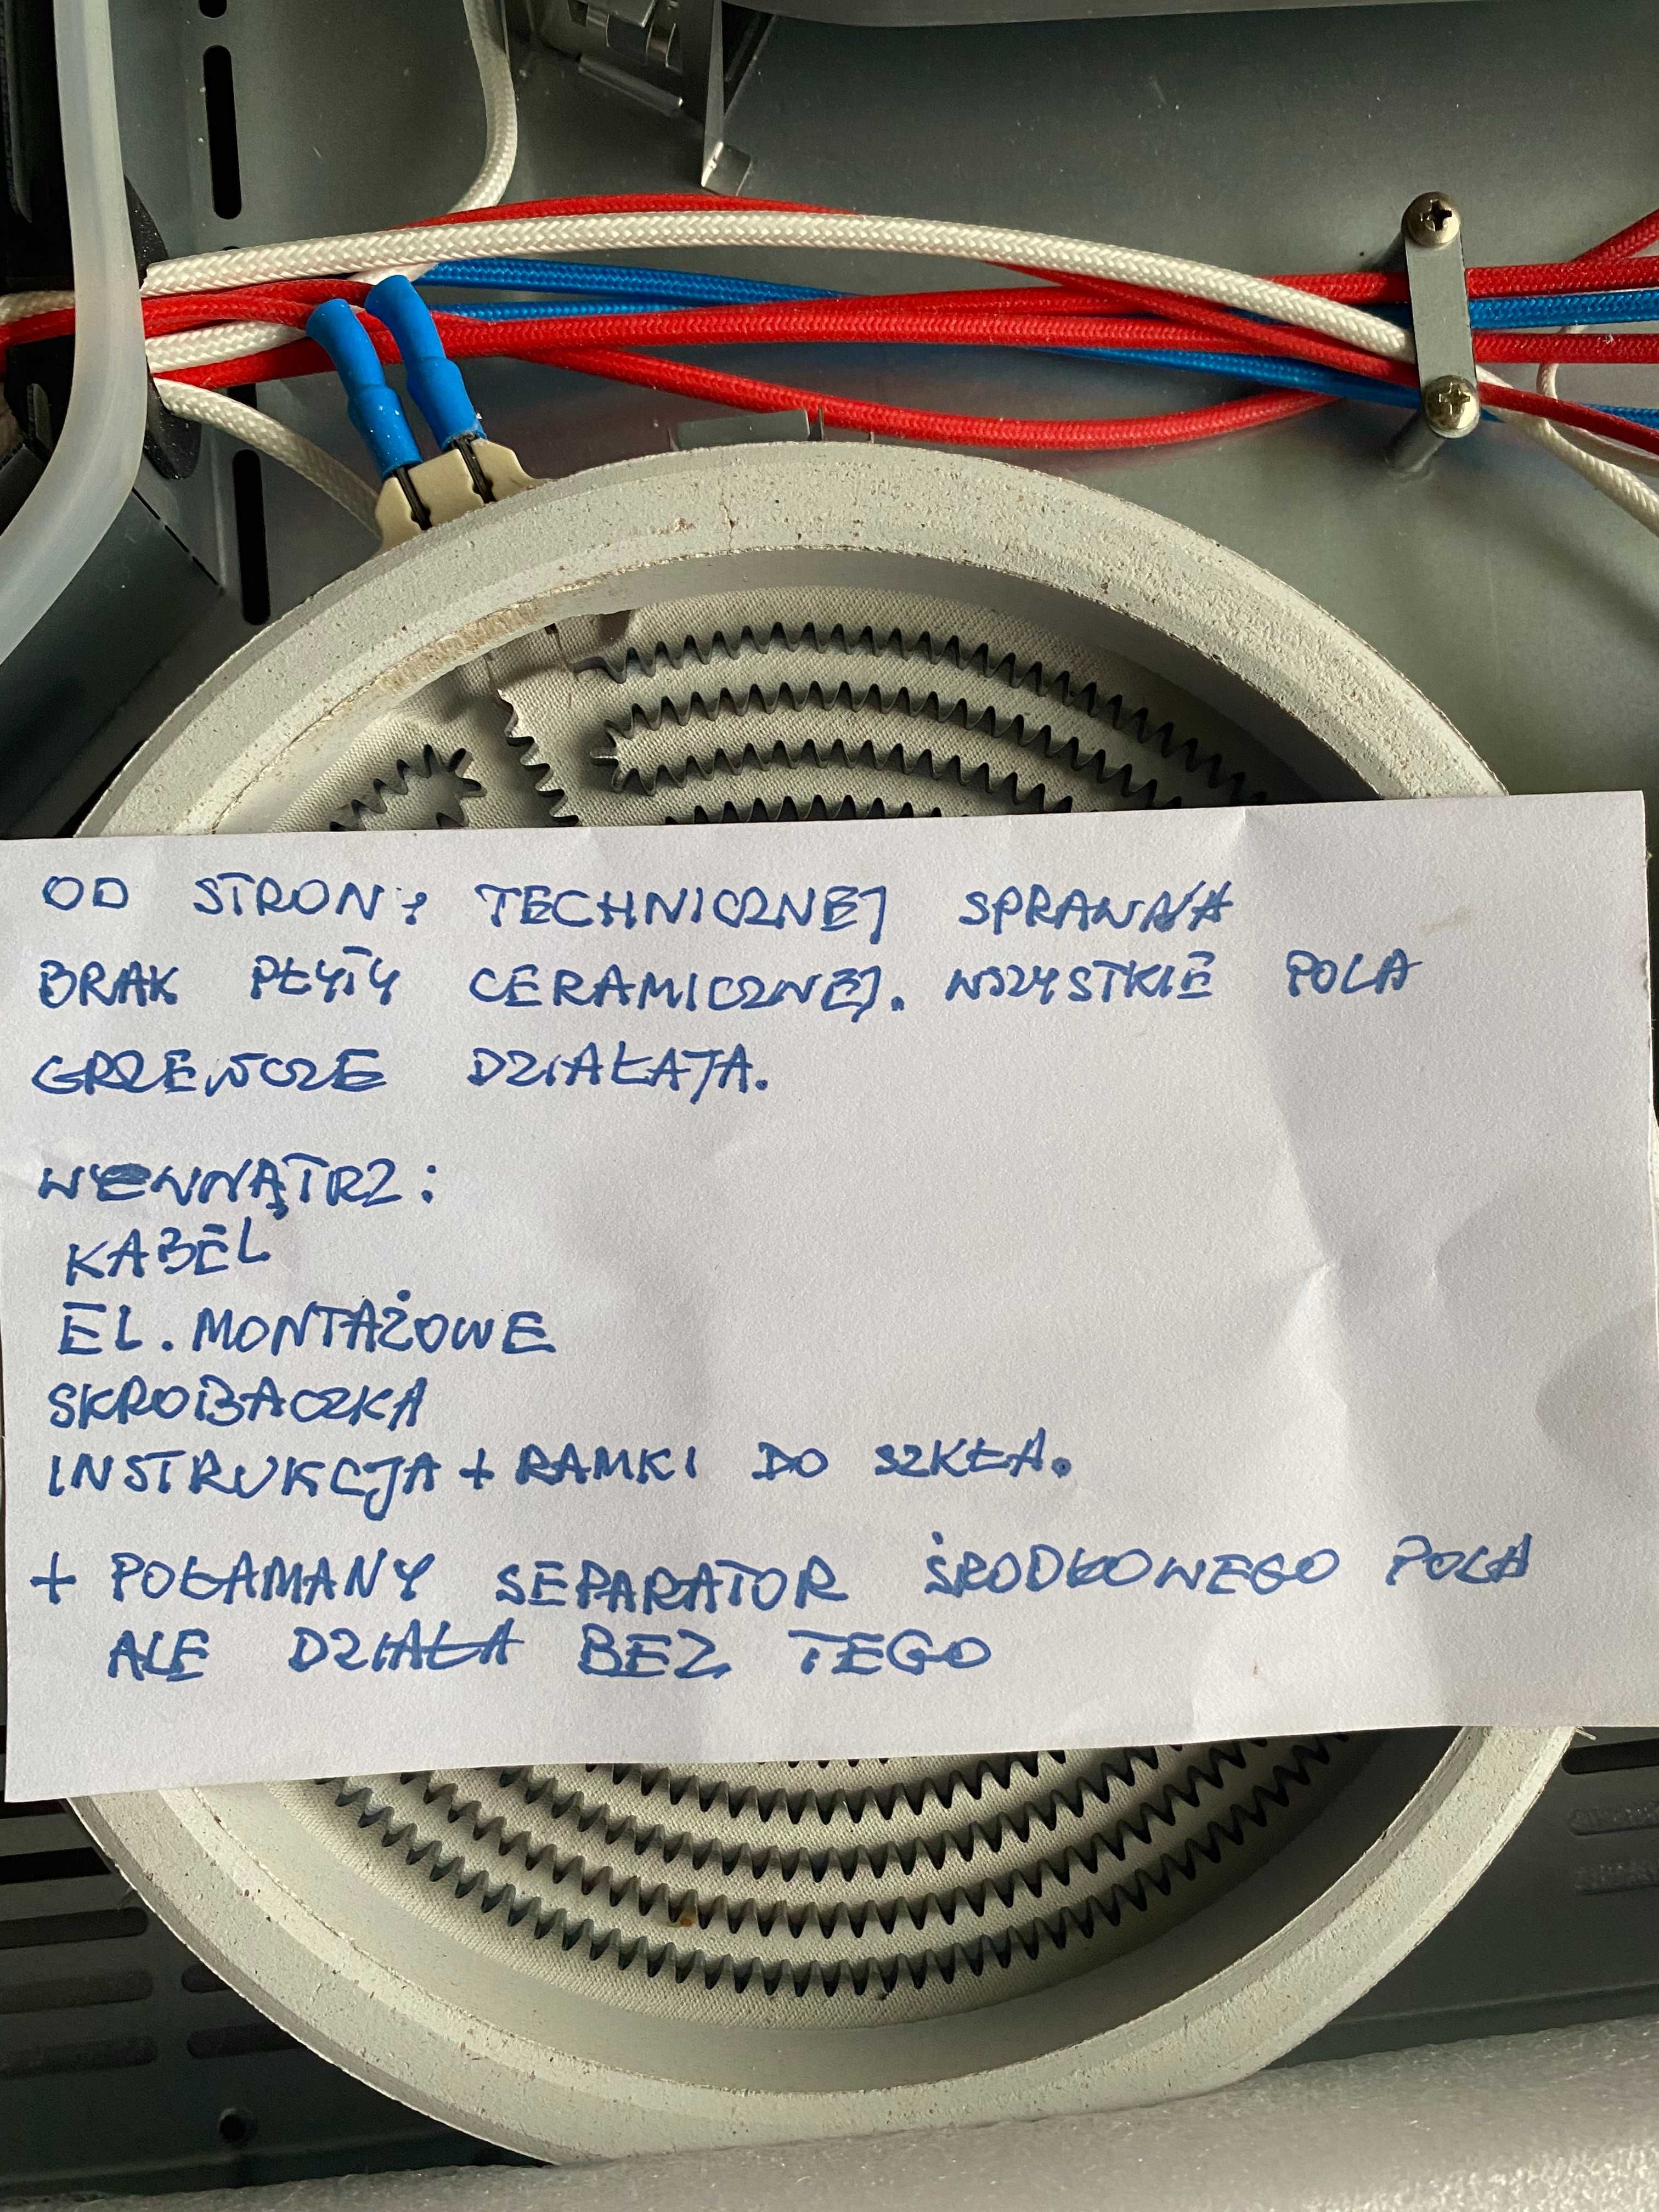 OD STRONY TECHNICZNEJ SPRAWNA
BRAK PŁYTY CERAMICZNEJ. WSZYSTKIE POLA
GRZEWCZE DZIAŁAJA.
WEWNĄTRZ:
KABEL
EL. MONTAŻOWE
SKROBACZKA
INSTRUKCJA + RAMKI DO SZKŁA.
+ POŁAMANY SEPARATOR ŚRODKOWEGO POLA
ALE DZIAŁA BEZ TEGO